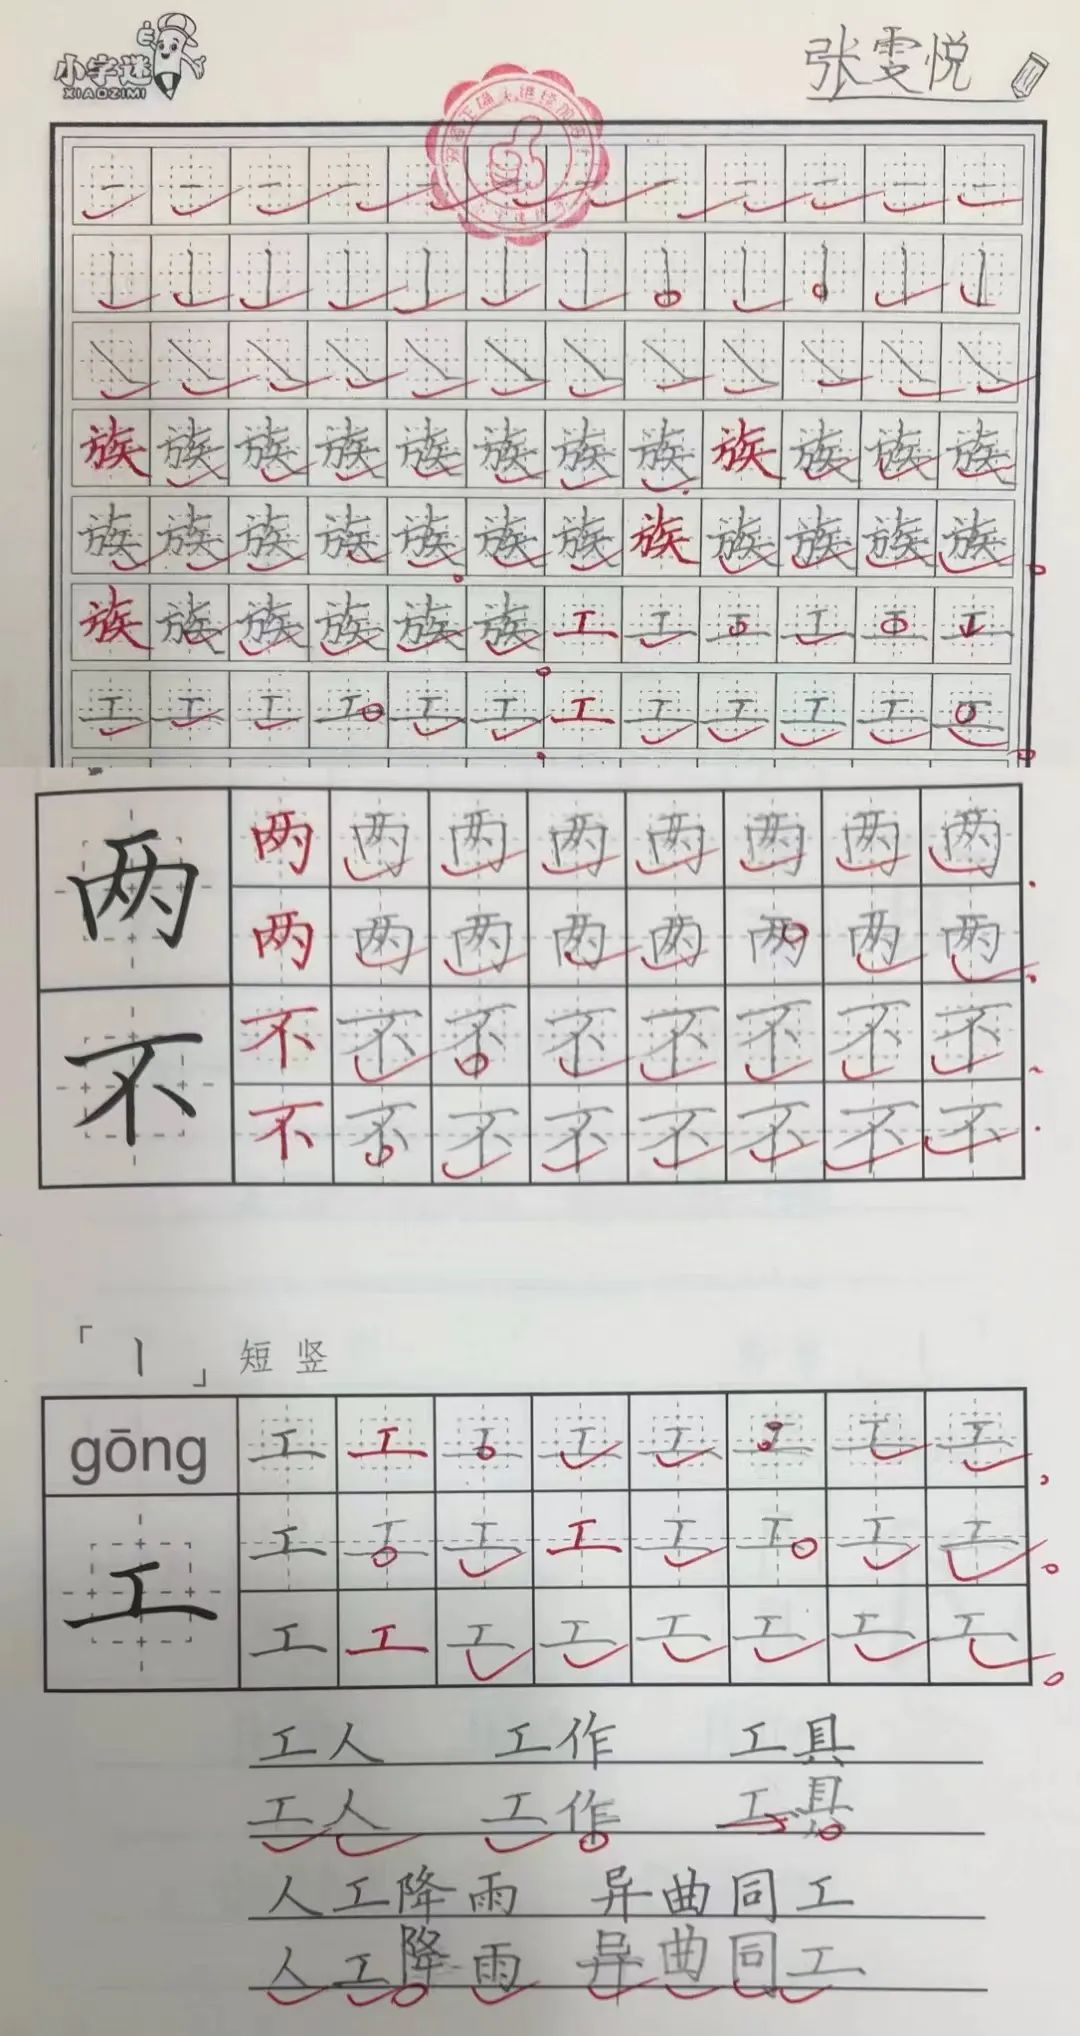 小字迷
XIAOZIMI
张雯悦
一 一 一 一 一 一 一 一 一 一 一 一
丨 丨 丨 丨 丨 丨 丨 丨 丨 丨 丨 丨
㇏ ㇏ ㇏ ㇏ ㇏ ㇏ ㇏ ㇏ ㇏ ㇏ ㇏ ㇏
族 族 族 族 族 族 族 族 族 族 族 族
族 族 族 族 族 族 族 族 族 族 族 族
族 族 族 族 族 族 工 工 工 工 工 工
工 工 工 工 工 工 工 工 工 工 工 工
两 两 两 两 两 两 两 两 两
两 两 两 两 两 两 两 两
不 不 不 不 不 不 不 不 不
不 不 不 不 不 不 不 不
「丨」短竖
gōng 工 工 工 工 工 工 工 工
工 工 工 工 工 工 工 工 工
工 工 工 工 工 工 工 工
工人 工作 工具
工人 工作 工具
人工降雨 异曲同工
人工降雨 异曲同工